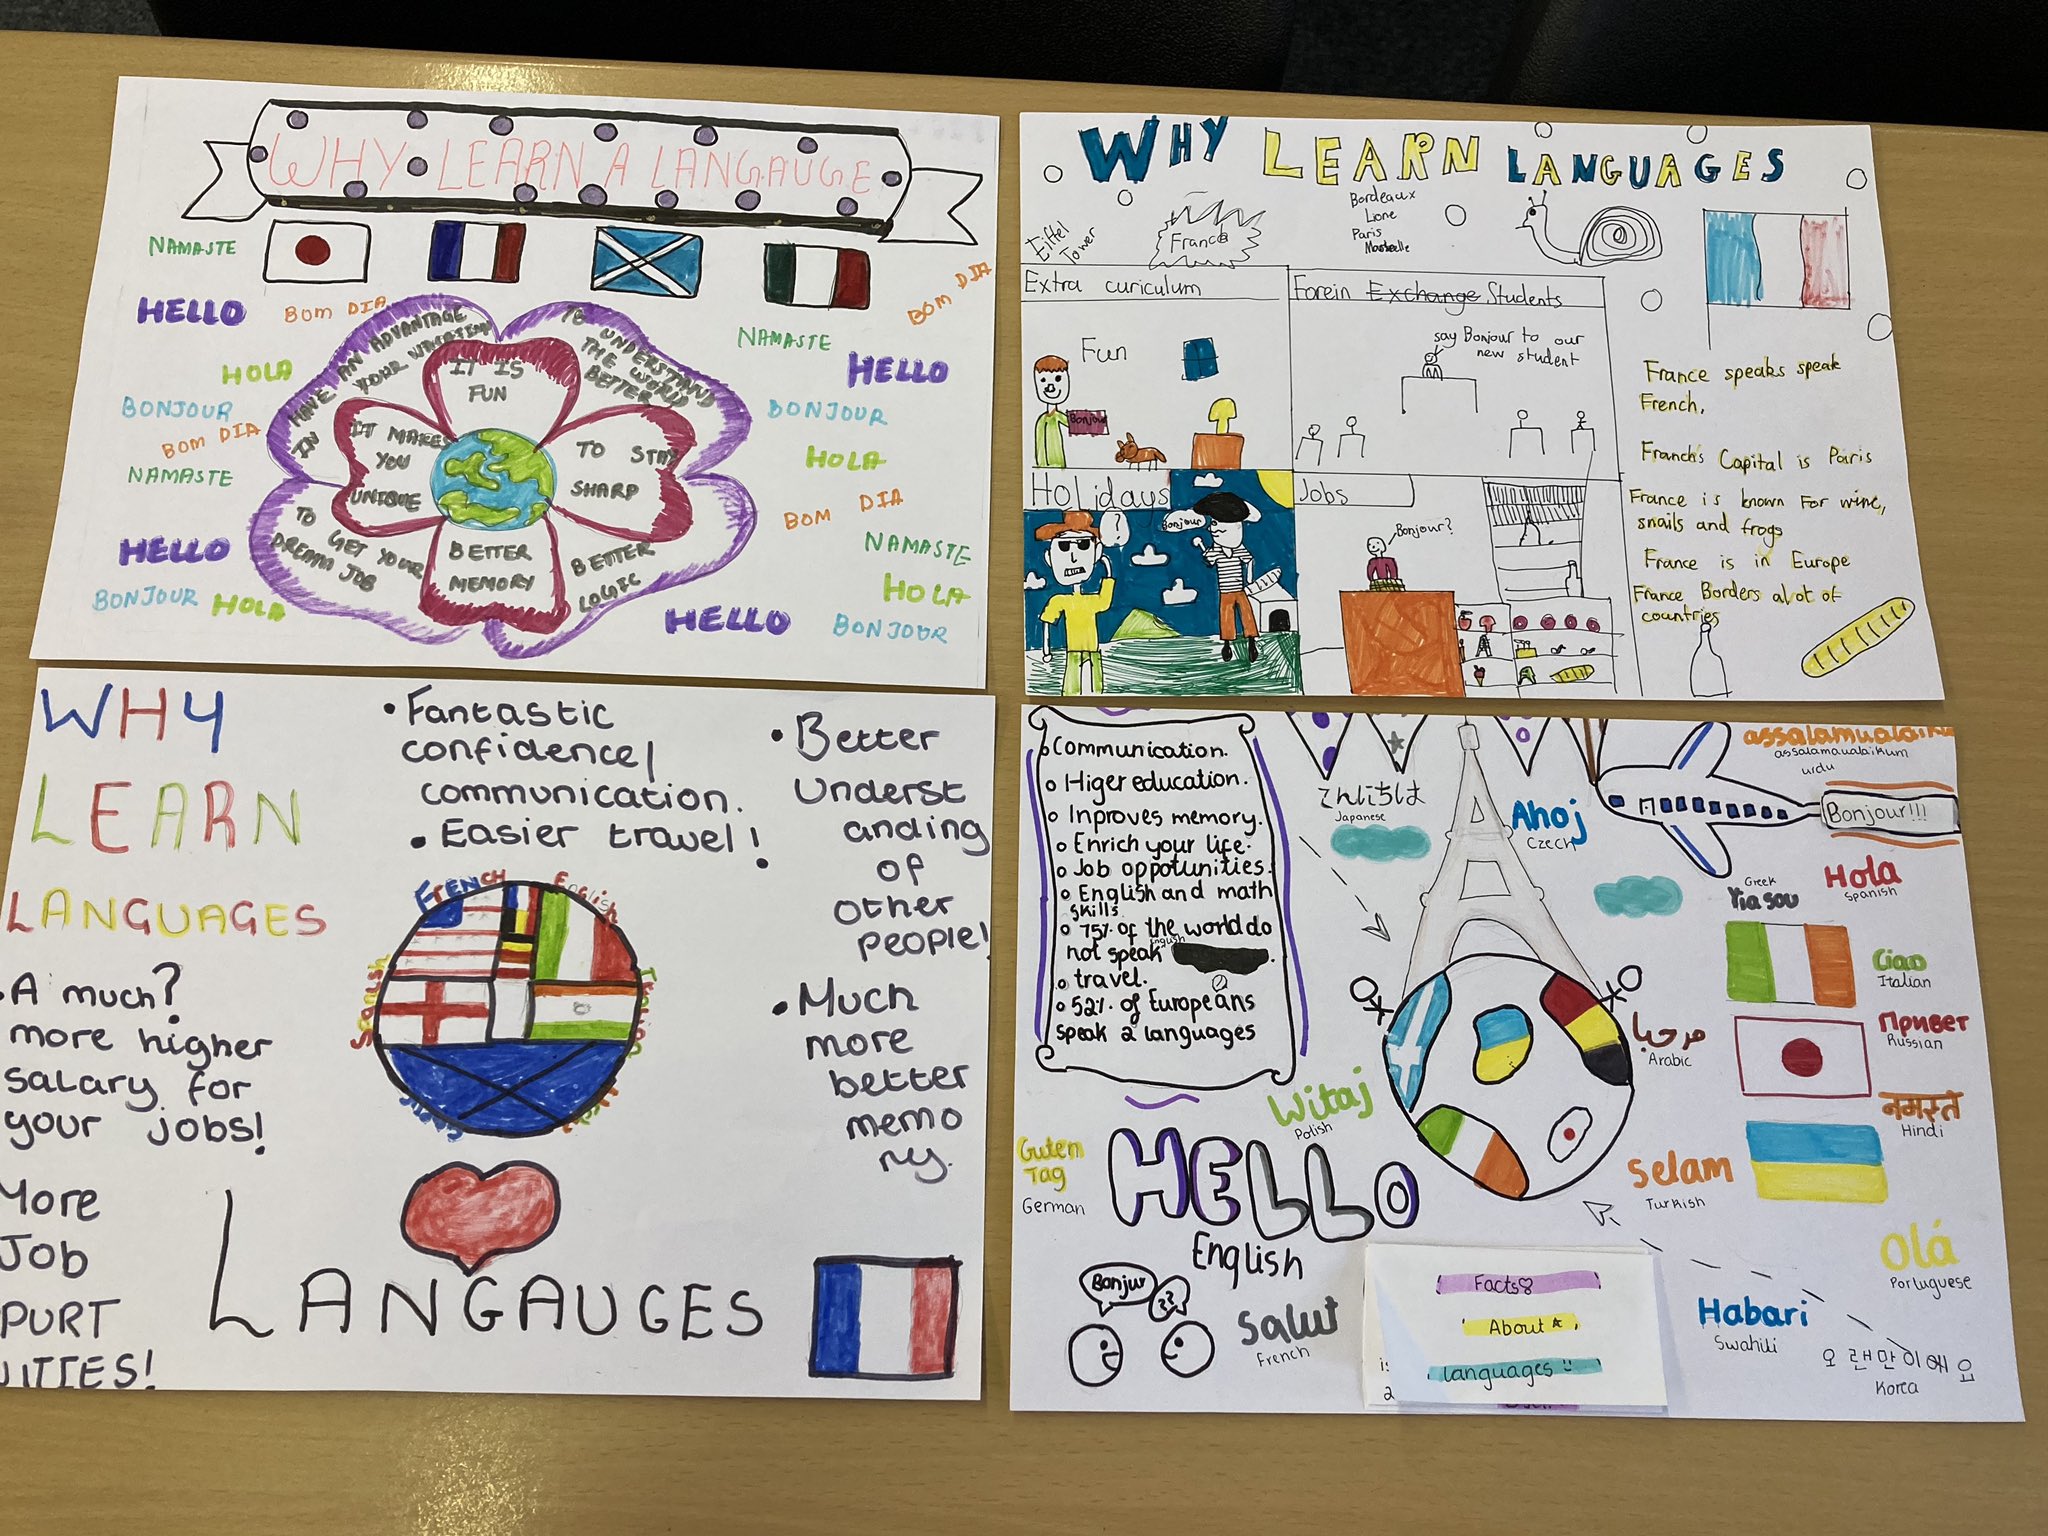 WHY LEARN A LANGAUGE
NAMASTE
HELLO
BOM DIA
BOM DIA
NAMASTE
HELLO
HOLA
BONJOUR
BOM DIA
NAMASTE
HELLO
BONJOUR
HOLA
BONJOUR
HOLA
BOM DIA
NAMASTE
HOLA
HELLO
BONJOUR
HAVE AN ADVANTAGE
IN YOUR
TO UNDERSTAND
THE WORLD
BETTER
IT IS
FUN
IT MAKES
YOU
UNIQUE
TO STAY
SHARP
BETTER
MEMORY
TO GET YOUR
DREAM JOB
BETTER
LOGIC
WHY LEARN LANGUAGES
Eiffel
Tower
France
Bordeaux
Lione
Paris
Extra curiculum
Fun
Bonjour
Forein Exchange Students
say Bonjour to our
new student
Holidays
?
Bonjour
Jobs
Bonjour?
France speaks speak
French,
Franch's Capital is Paris
France is known for wine,
snails and frogs
France is in Europe
France Borders alot of
countries
WHY
LEARN
LANGUAGES
• Fantastic
confidence/
communication.
• Easier travel!
• Better
Underst
anding
of
other
people!
• A much?
more higher
salary for
your jobs!
• Much
more
better
memo
ry.
More
Job
PURT
ITIES!
FRENCH
English
Spanish
Italian
LANGAUGES
Communication.
Higer education.
Inproves memory.
Enrich your life.
Job oppotunities.
English and math
skills.
75% of the world do
not speak English.
travel.
52% of Europeans
speak 2 languages
こんにちは
Japanese
Ahoj
Czech
assalamualaikum
assalamaualaikum
urdu
Bonjour!!!
Hola
Spanish
Greek
Yiasou
Ciao
Italian
Привет
Russian
مرحبا
Arabic
नमस्ते
Hindi
Witaj
Polish
Guten
Tag
German
HELLO
English
Selam
Turkish
Olá
Portuguese
Bonjur
??
Salut
French
Facts
About
languages
Habari
Swahili
오랜만이에요
Korea